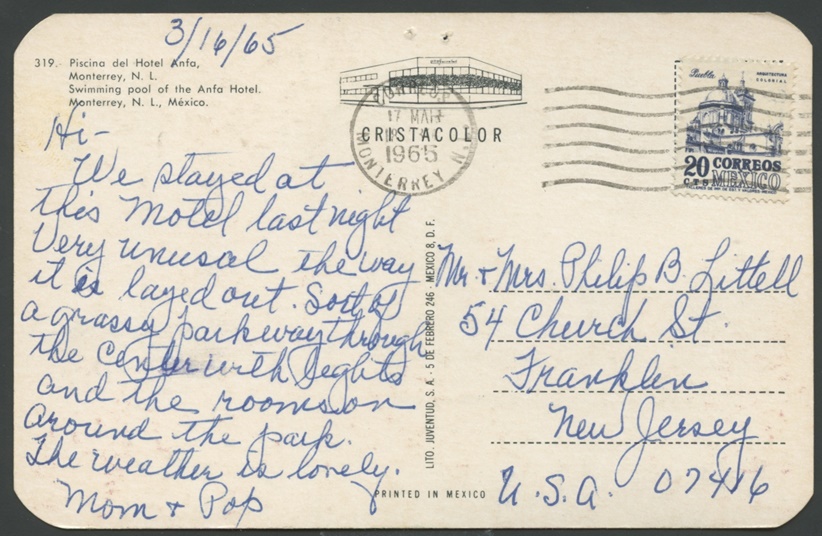 3/16/65
319. Piscina del Hotel Anfa,
Monterrey, N. L.
Swimming pool of the Anfa Hotel.
Monterrey, N. L., México.
CRISTACOLOR
17 MAR
1965
MONTERREY N.
Puebla
ARQUITECTURA
COLONIAL
20 CORREOS
CTS MEXICO
Hi-
We stayed at
this Motel last night
Very unusual the way
it is layed out. Sort of
a grassy parkway through
the center with lights
and the rooms on
around the park.
The weather is lovely.
Mom + Pop
LITO. JUVENTUD, S. A. - 5 DE FEBRERO 246 - MEXICO 8, D. F.
Mr + Mrs. Philip B. Littell
54 Church St.
Franklin
New Jersey
U.S.A. 07416
PRINTED IN MEXICO